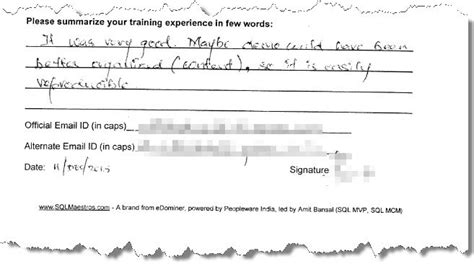 Please summarize your training experience in few words:
It was very good. Maybe demo could have been
better organized (content), so it is easily
referencible
Official Email ID (in caps)
Alternate Email ID (in caps)
Date: 11/Dec/2015
Signature
www.SQLMaestros.com - A brand from eDominer, powered by Peopleware India, led by Amit Bansal (SQL MVP, SQL MCM)